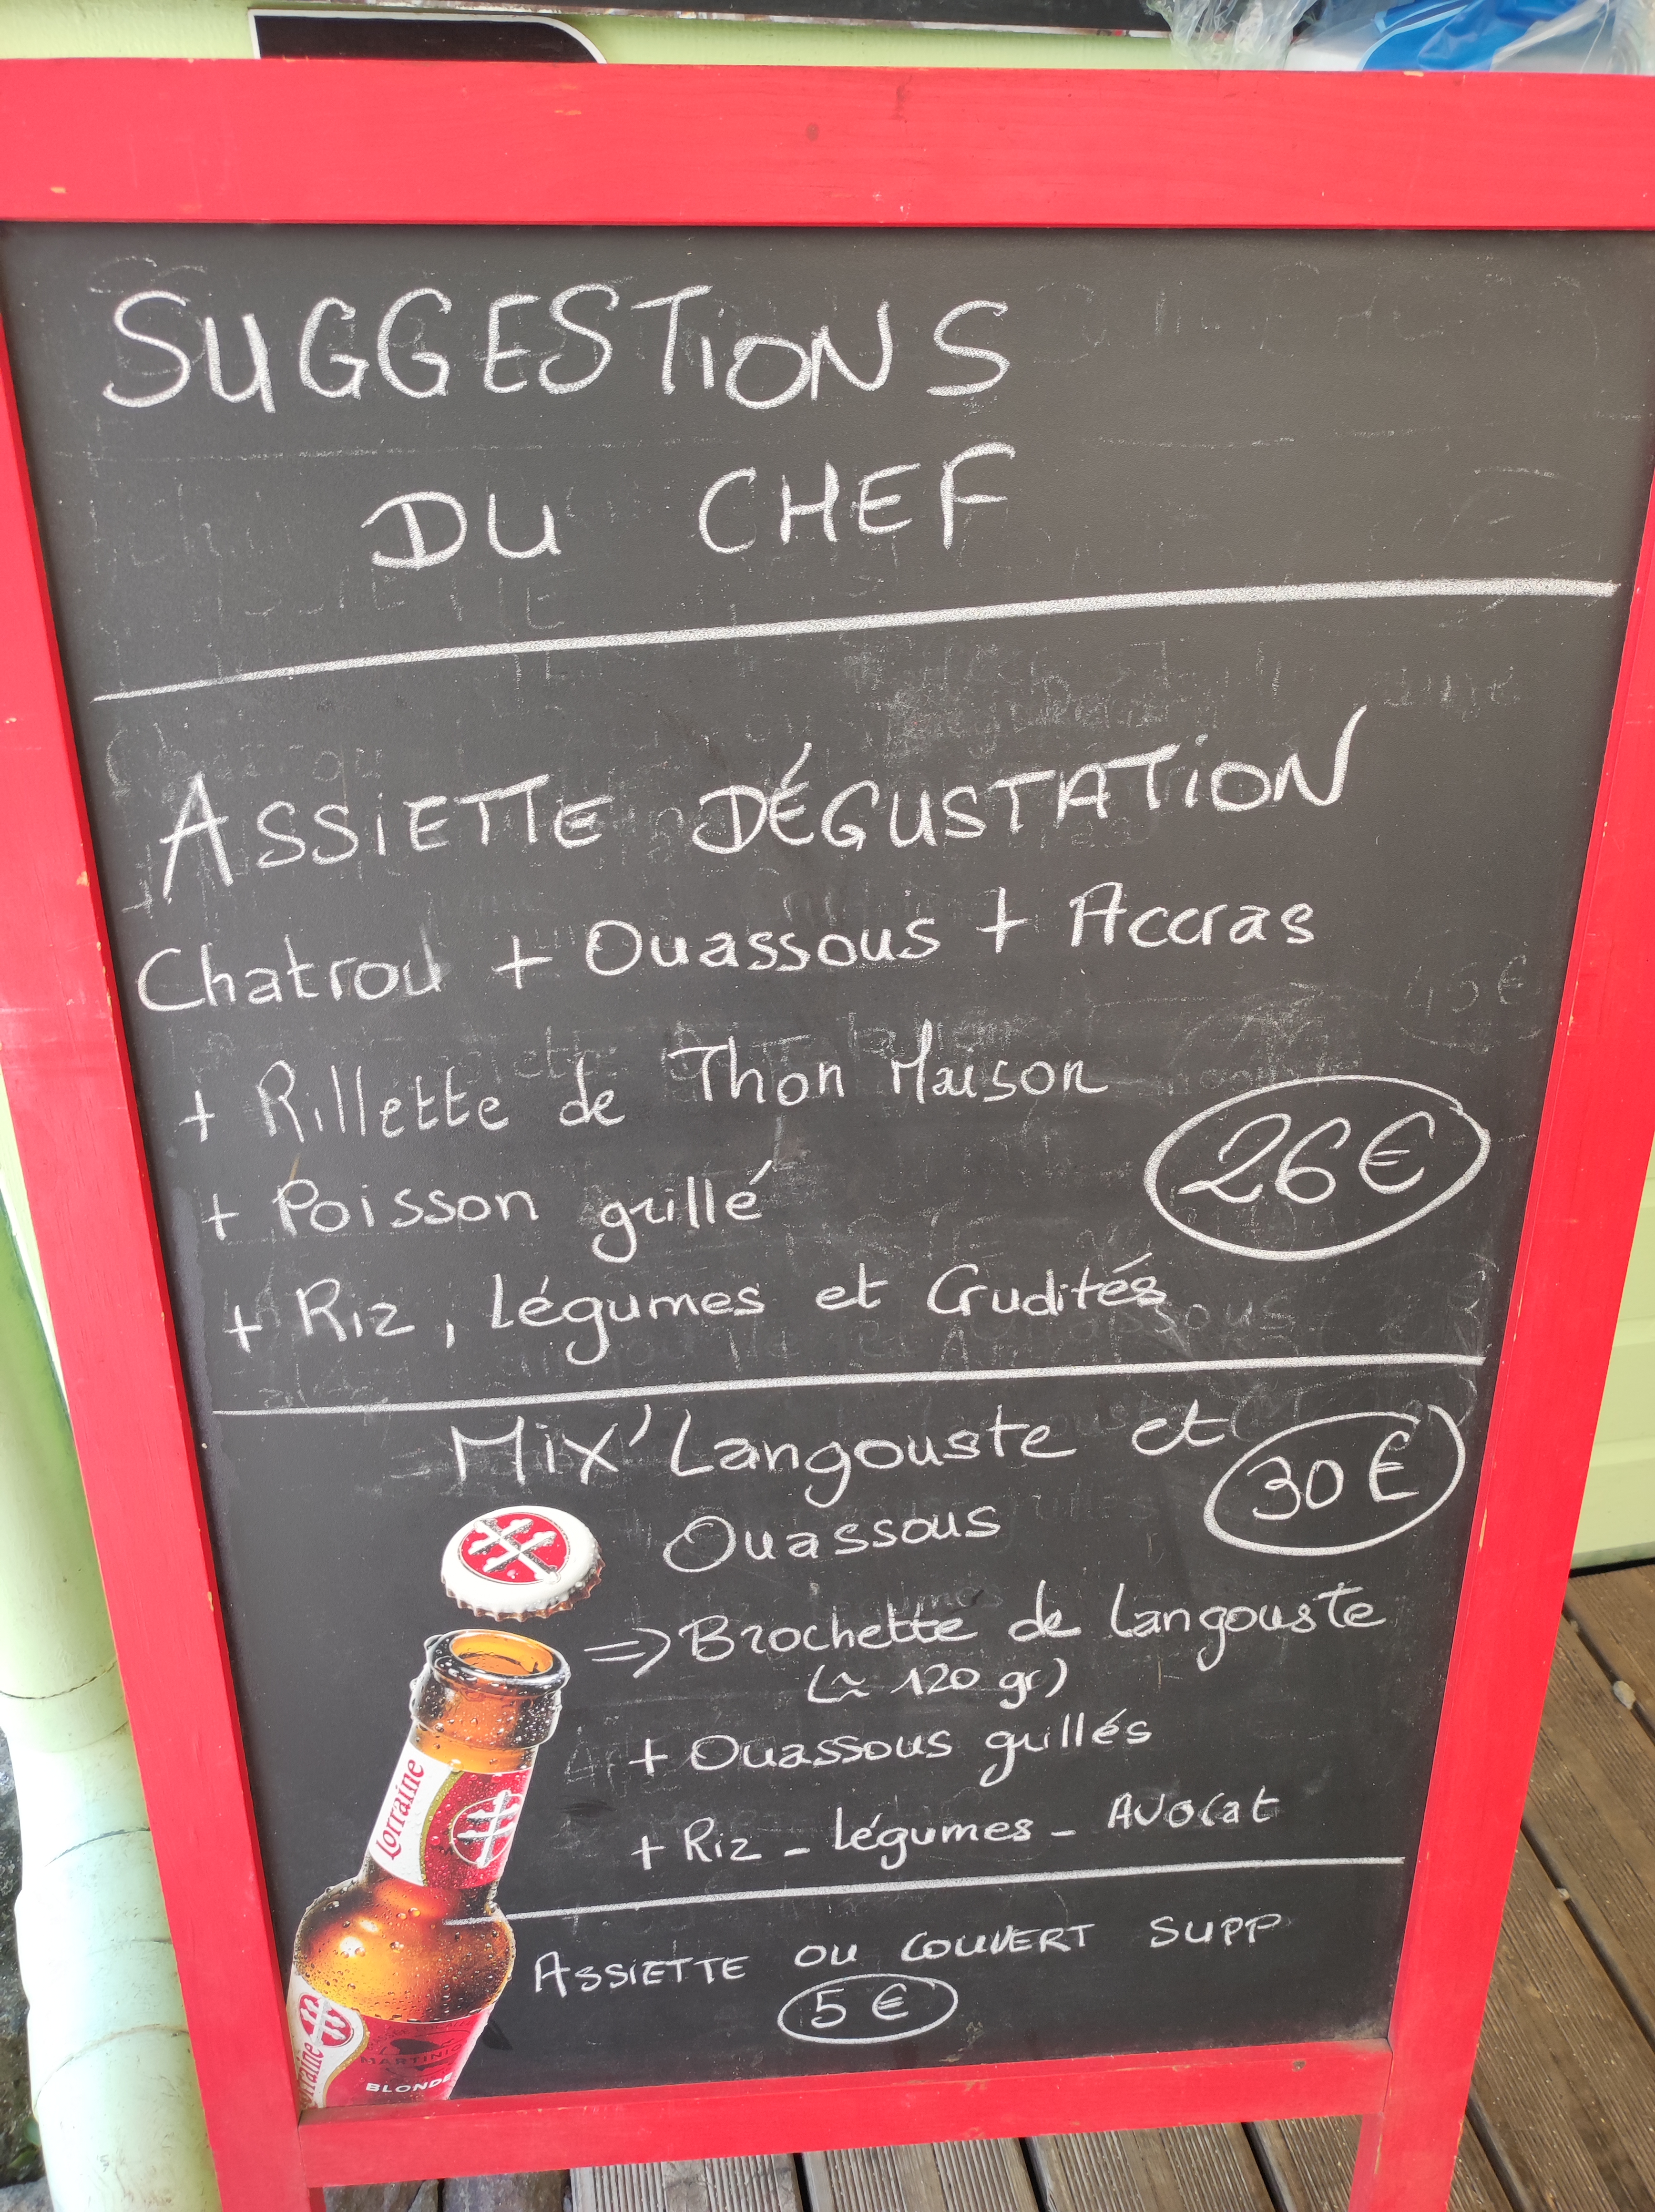 SUGGESTIONS
DU CHEF
ASSIETTE DÉGUSTATION
Chatrou + Ouassous + Accras
+ Rillette de Thon Maison
26€
+ Poisson grillé
+ Riz, légumes et Crudités
Mix' Langouste et
30€
Ouassous
=> Brochette de langouste
(≃ 120 gr)
+ Ouassous grillés
+ Riz - légumes - Avocat
ASSIETTE OU COUVERT SUPP
5 €
Lorraine
MARTINIQ
BLONDE